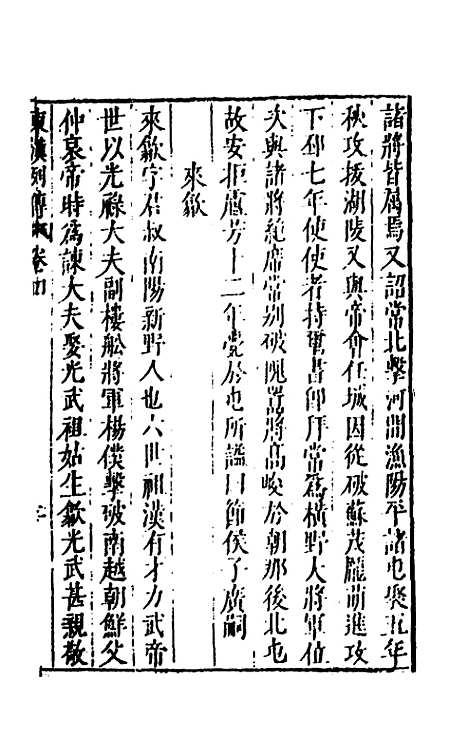 諸將皆屬焉又詔常北擊河間漁陽平諸屯聚五年
秋攻拔湖陵又與帝會任城因從破蘇茂龐萌進攻
下邳七年使使者持璽書卽拜常爲橫野大將軍位
次與諸將絕席常別破隗囂將高峻於朝那後北屯
故安拒盧芳十二年薨於屯所謚曰節侯子廣嗣
來歙
來歙字君叔南陽新野人也六世祖漢有才力武帝
世以光祿大夫副樓船將軍楊僕擊破南越朝鮮父
仲哀帝時爲諫大夫娶光武祖姑生歙光武甚親敬
東漢列傳 卷四